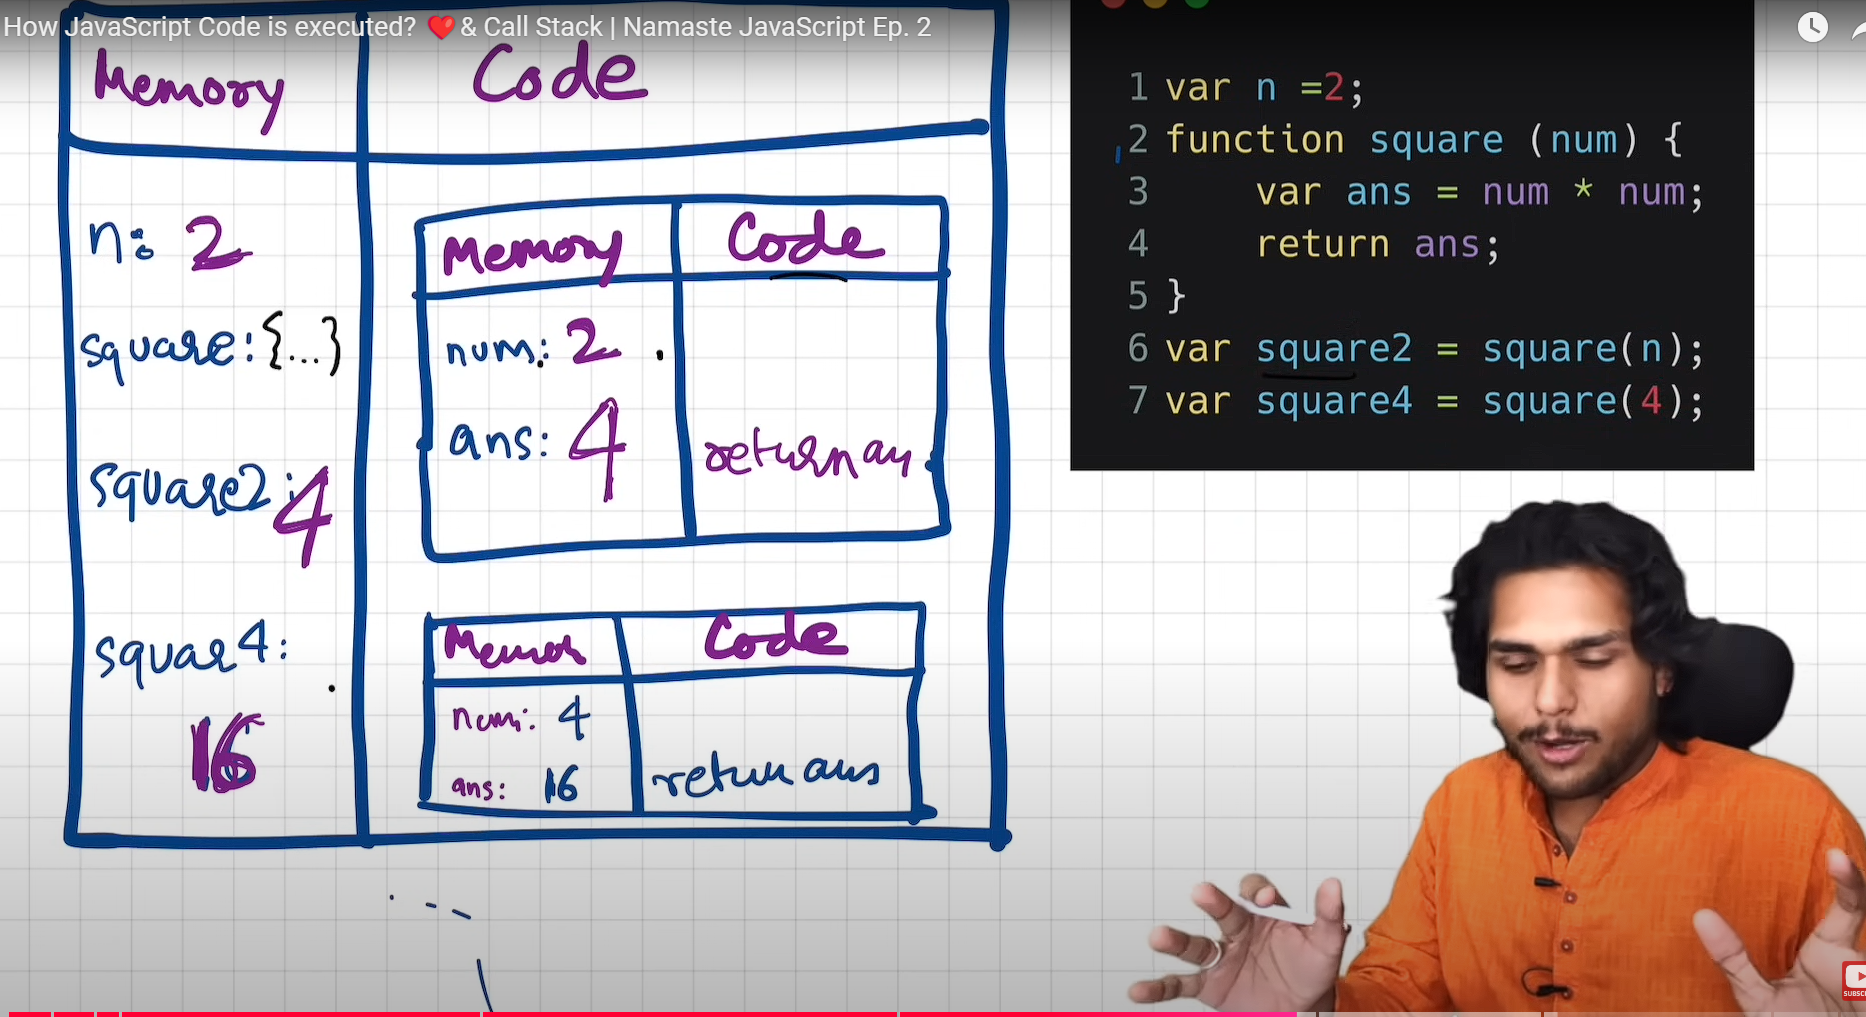 How JavaScript Code is executed? ❤️ & Call Stack | Namaste JavaScript Ep. 2
Memory Code
n: 2
square: {...}
square2: 4
squar4:
16
Memory Code
num: 2
ans: 4
return an
Code
num: 4
ans: 16
return ans
1 var n =2;
2 function square (num) {
3 var ans = num * num;
4 return ans;
5 }
6 var square2 = square(n);
7 var square4 = square(4);